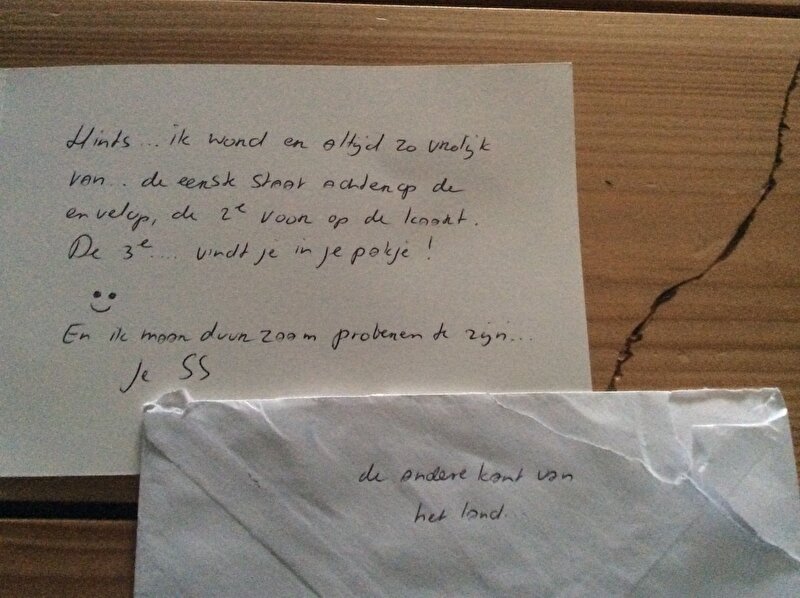 Hints... ik word en altijd zo vrolijk
van... de eerste staat achterop de
envelop, de 2e voor op de kaart.
De 3e.... vindt je in je pakje!
En ik maar duurzaam proberen te zijn...
Je SS
de andere kant van
het land...